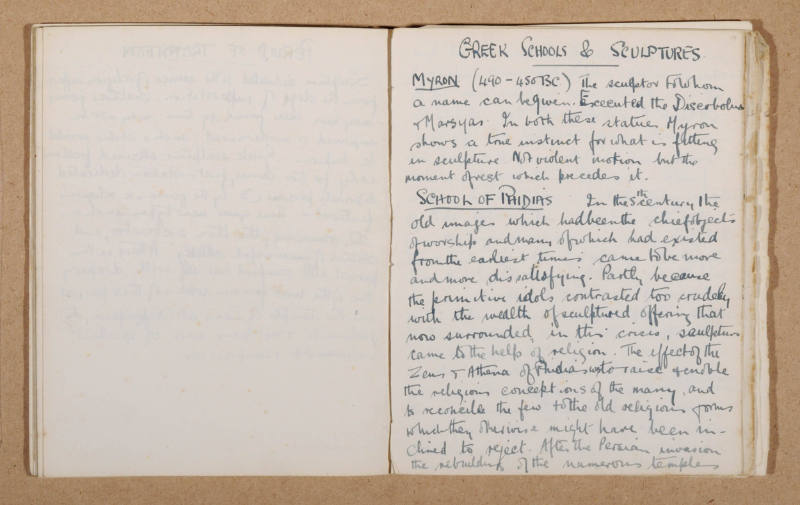 GREEK SCHOOLS & SCULPTURES
MYRON (490 - 450 BC) The sculptor to whom
a name can be given. Executed the Discobolus
& Marsyas. In both these statues Myron
shows a true instinct for what is fitting
in sculpture. Not violent motion but the
moment of rest which precedes it.
SCHOOL OF PHIDIAS In the 5th century the
old images which had been the chief objects
of worship and many of which had existed
from the earliest times came to be more
and more dissatisfying. Partly because
the primitive idols contrasted too crudely
with the wealth of sculptured offering that
now surrounded, in this crisis, sculpture
came to the help of religion. The effect of the
Zeus & Athena of Phidias was to raise & enoble
the religious conceptions of the many, and
to reconcile the few to the old religious forms
which they otherwise might have been in-
clined to reject. After the Persian invasion
the rebuilding of the numerous temples